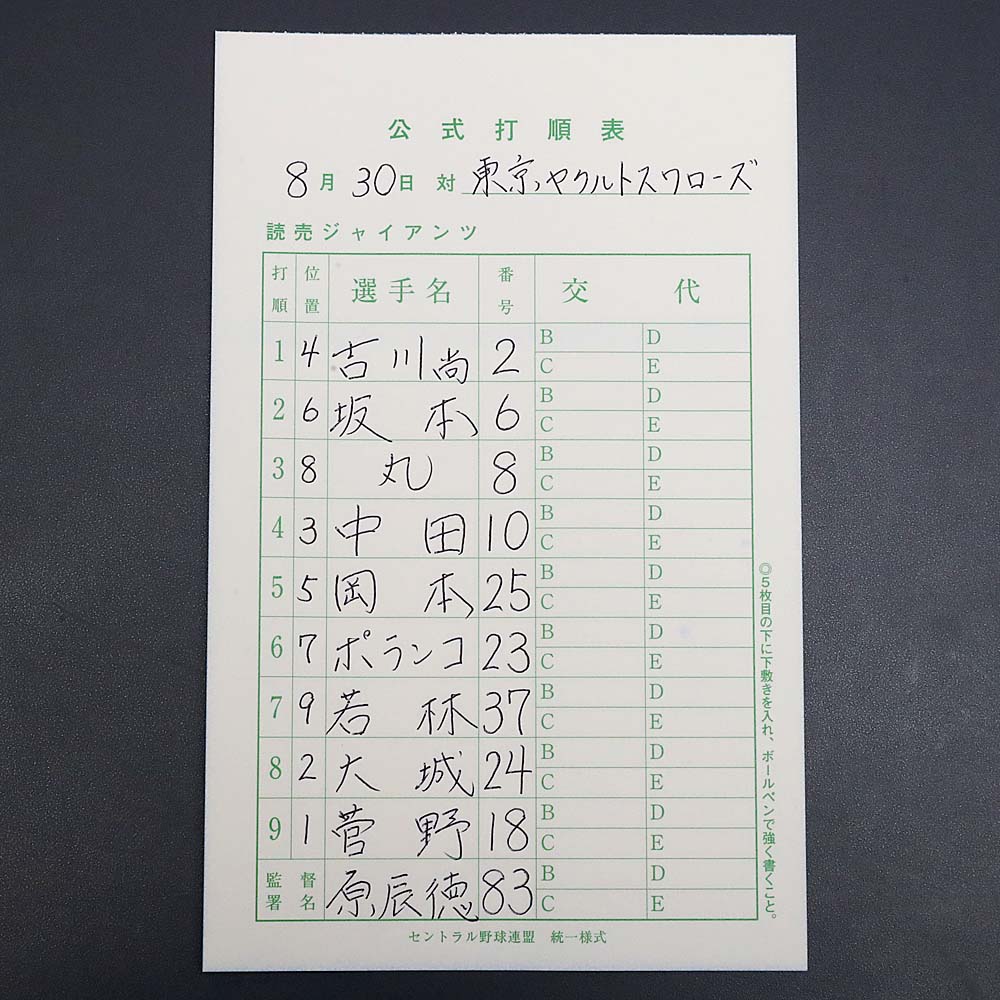 公式打順表
8月30日 対 東京ヤクルトスワローズ
読売ジャイアンツ
打順 位置 選手名 番号 交代
1 4 吉川尚 2 B D
C E
2 6 坂本 6 B D
C E
3 8 丸 8 B D
C E
4 3 中田 10 B D
C E
5 5 岡本 25 B D
C E
6 7 ポランコ 23 B D
C E
7 9 若林 37 B D
C E
8 2 大城 24 B D
C E
9 1 菅野 18 B D
C E
監督署名 原辰徳 83 B D
C E
セントラル野球連盟 統一様式
◎5枚目の下に下敷きを入れ、ボールペンで強く書くこと。